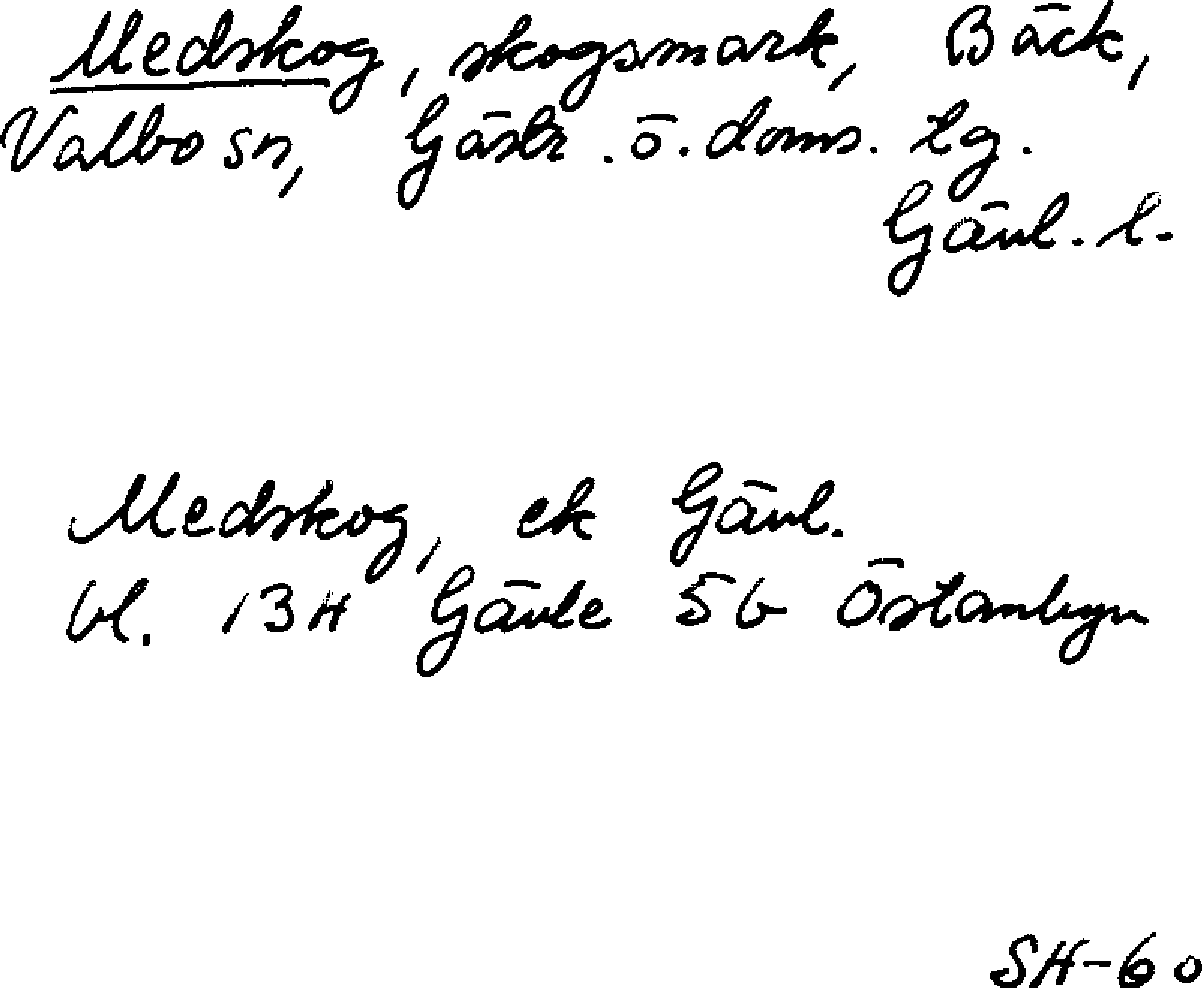 Medskog, skogsmark, Bäck,
Valbo sn, Gästr. ö. doms. tg.
Gävl. l.
Medskog, ek Gävl.
bl. 13H Gävle 5b Östanbyn
SH-60